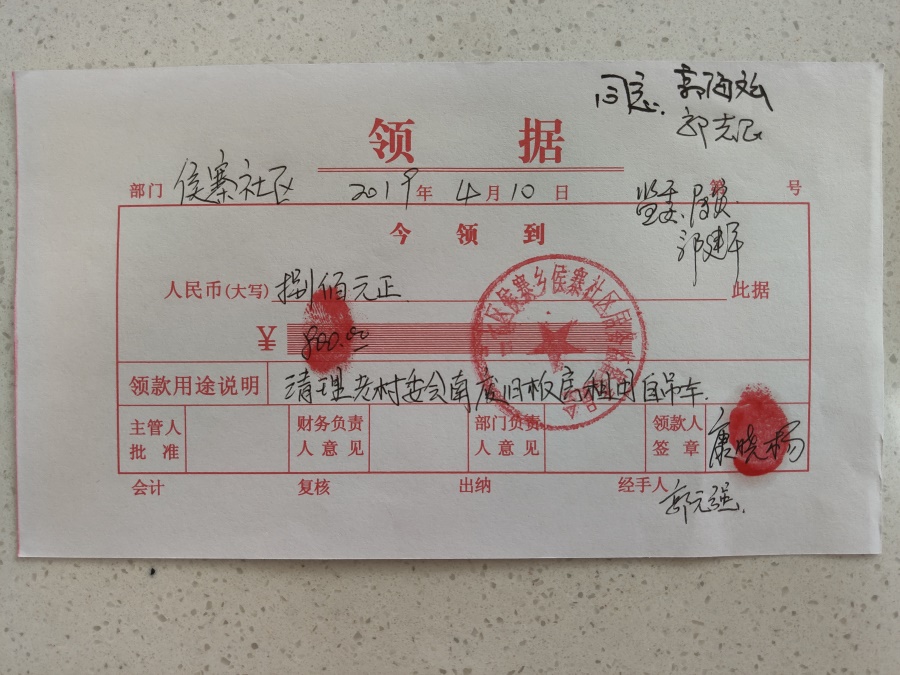 同意. 郭海斌
郭志民
领 据
部门 侯寨社区 2019年 4月 10日 第 号
监委. 周贤
邓建军
今 领 到
人民币(大写) 捌佰元正. 此据
¥ 800.00
侯寨乡侯寨社区居务监督
领款用途说明 清理老村委会南废旧板房租用自吊车.
主管人批准 财务负责人意见 部门负责人意见 领款人签章 康晓杨
会计 复核 出纳 经手人 郭元强.